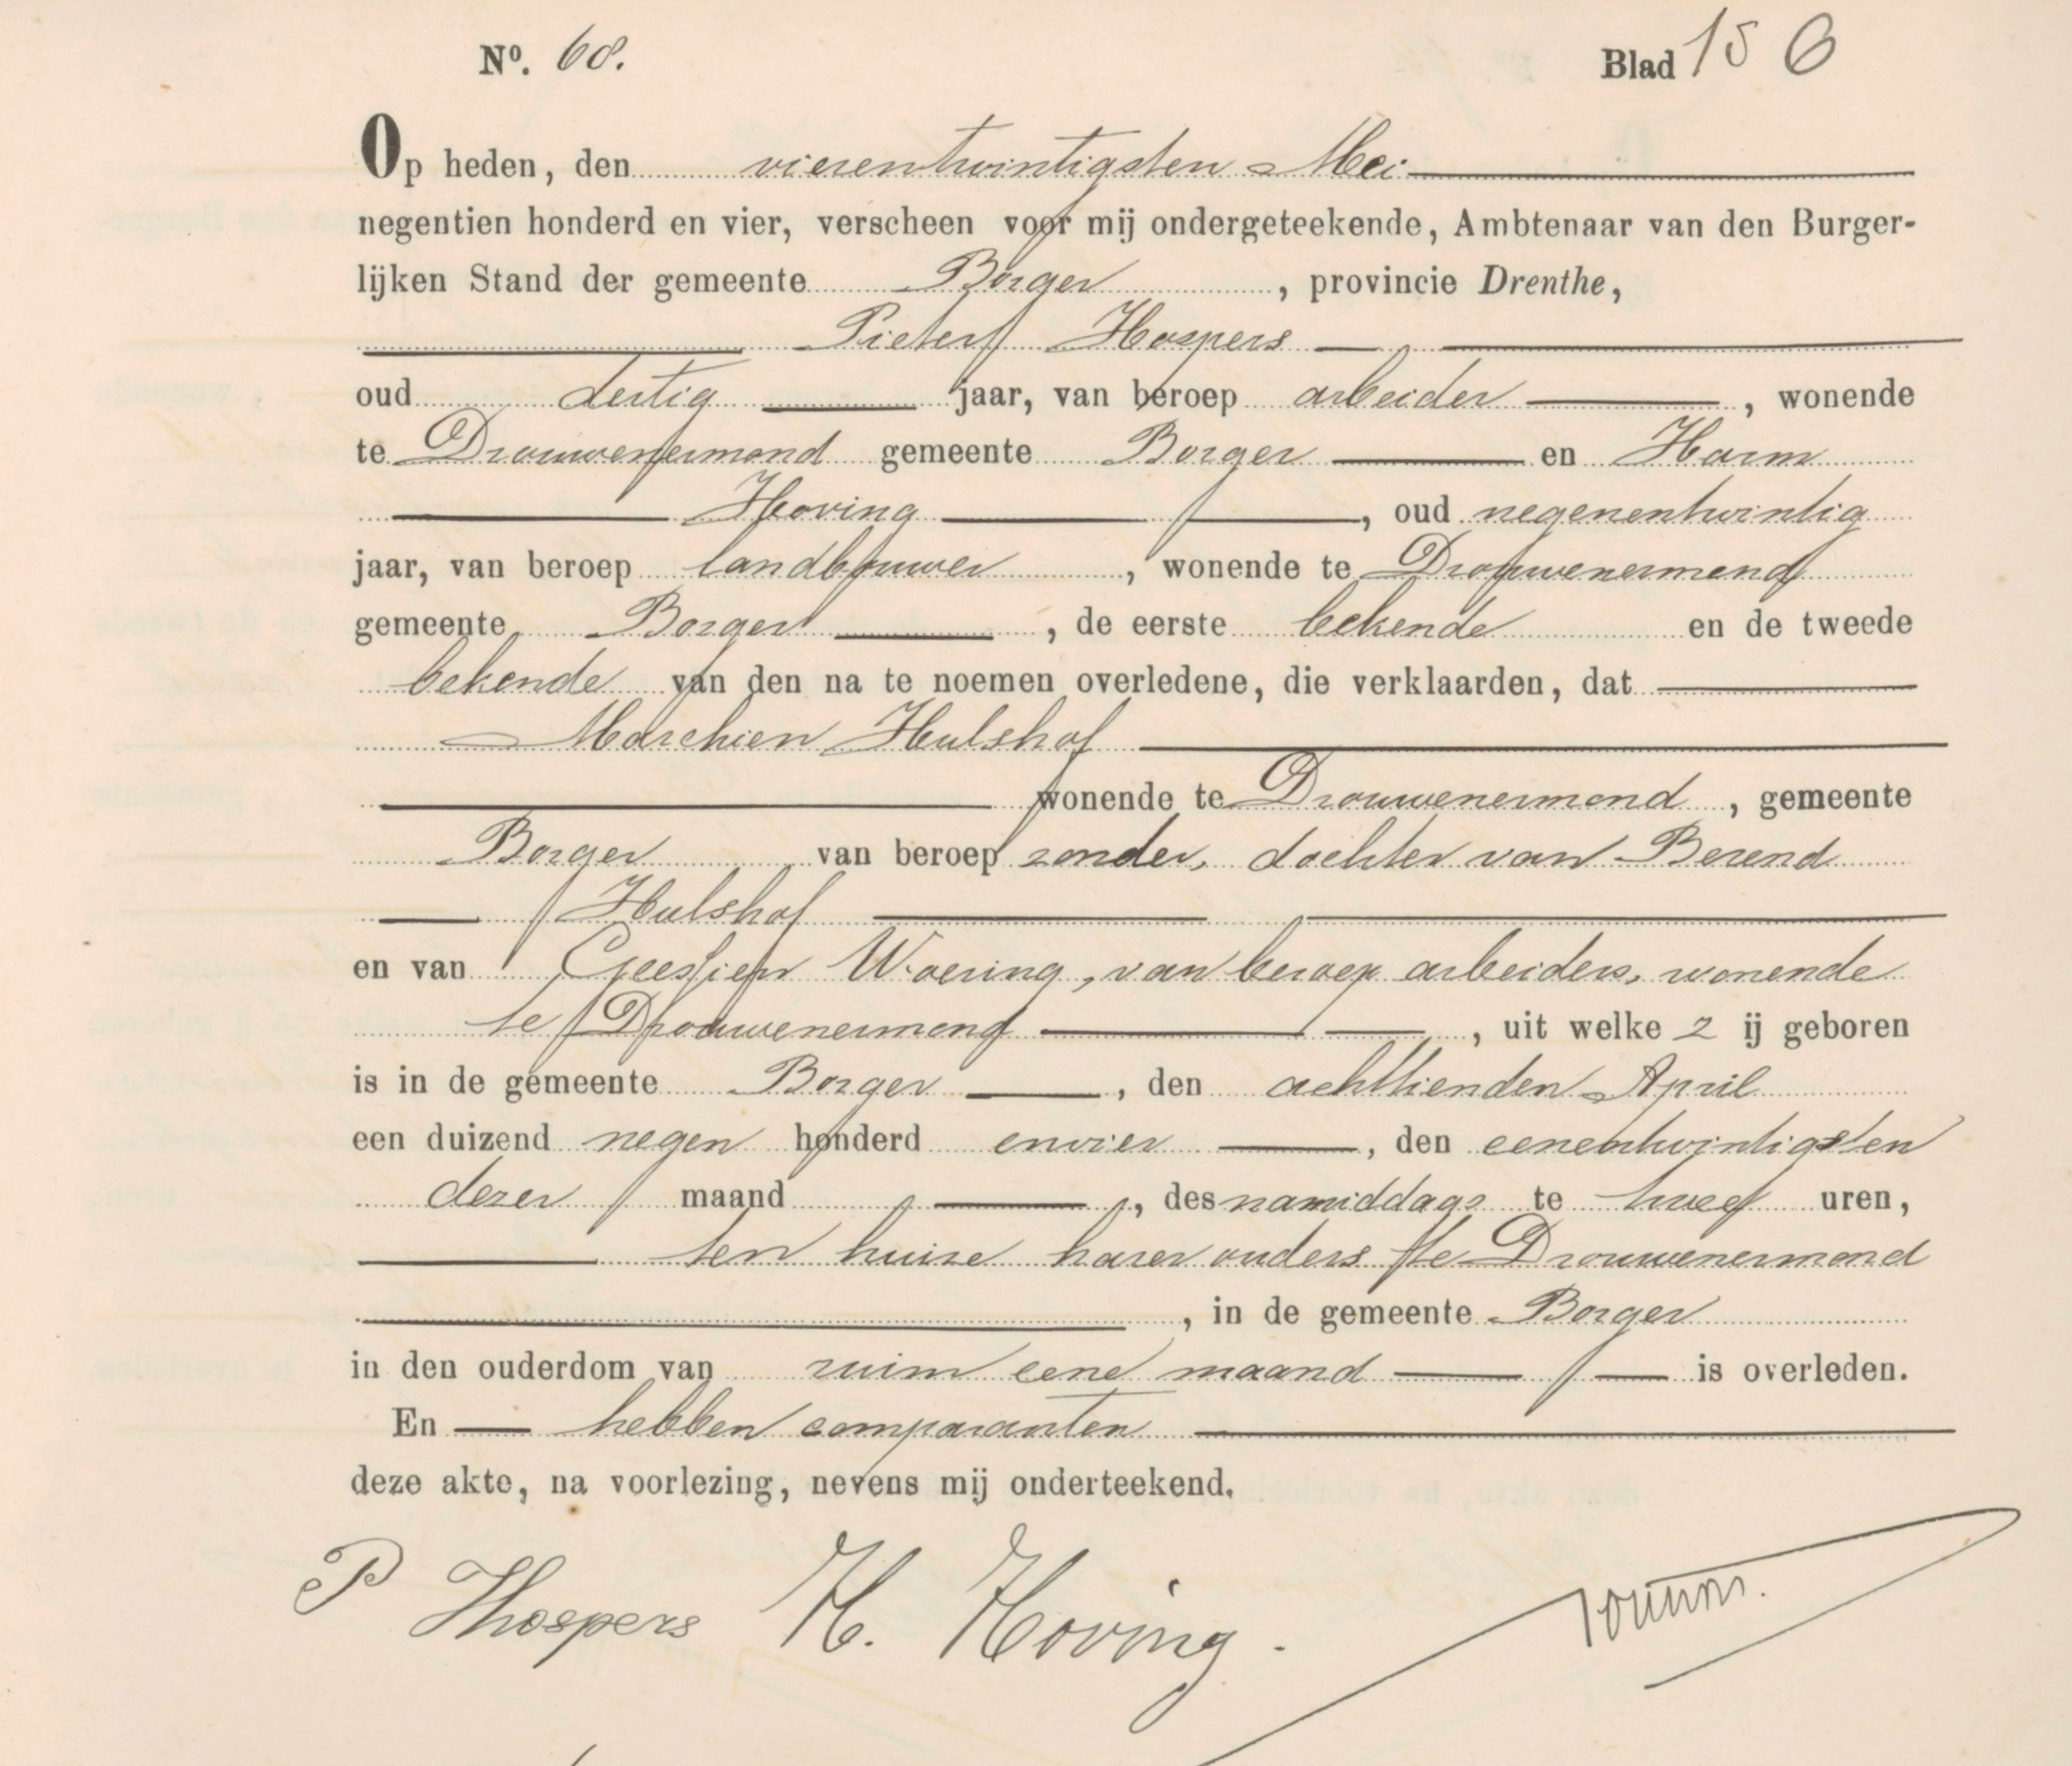 Nº. 60. Blad 15 6
Op heden, den vierentwintigsten Mei
negentien honderd en vier, verscheen voor mij ondergeteekende, Ambtenaar van den Burger-
lijken Stand der gemeente Borger, provincie Drenthe,
Pieter Hospers
oud dertig jaar, van beroep arbeider, wonende
te Drouwenermond gemeente Borger en Harm
Hoving, oud negenentwintig
jaar, van beroep landbouwer, wonende te Drouwenermond
gemeente Borger, de eerste bekende en de tweede
bekende van den na te noemen overledene, die verklaarden, dat
Marchien Hulshof
wonende te Drouwenermond, gemeente
Borger van beroep zonder, dochter van Berend
Hulshof
en van Geesjien Woering, van beroep arbeiders, wonende
te Drouwenermond, uit welke zij geboren
is in de gemeente Borger, den achttienden April
een duizend negen honderd envier, den eenentwintigsten
dezer maand, des namiddags te twee uren,
ten huize harer ouders te Drouwenermond
, in de gemeente Borger
in den ouderdom van ruim eene maand is overleden.
En hebben comparanten
deze akte, na voorlezing, nevens mij onderteekend.
P Hospers H. Hoving.